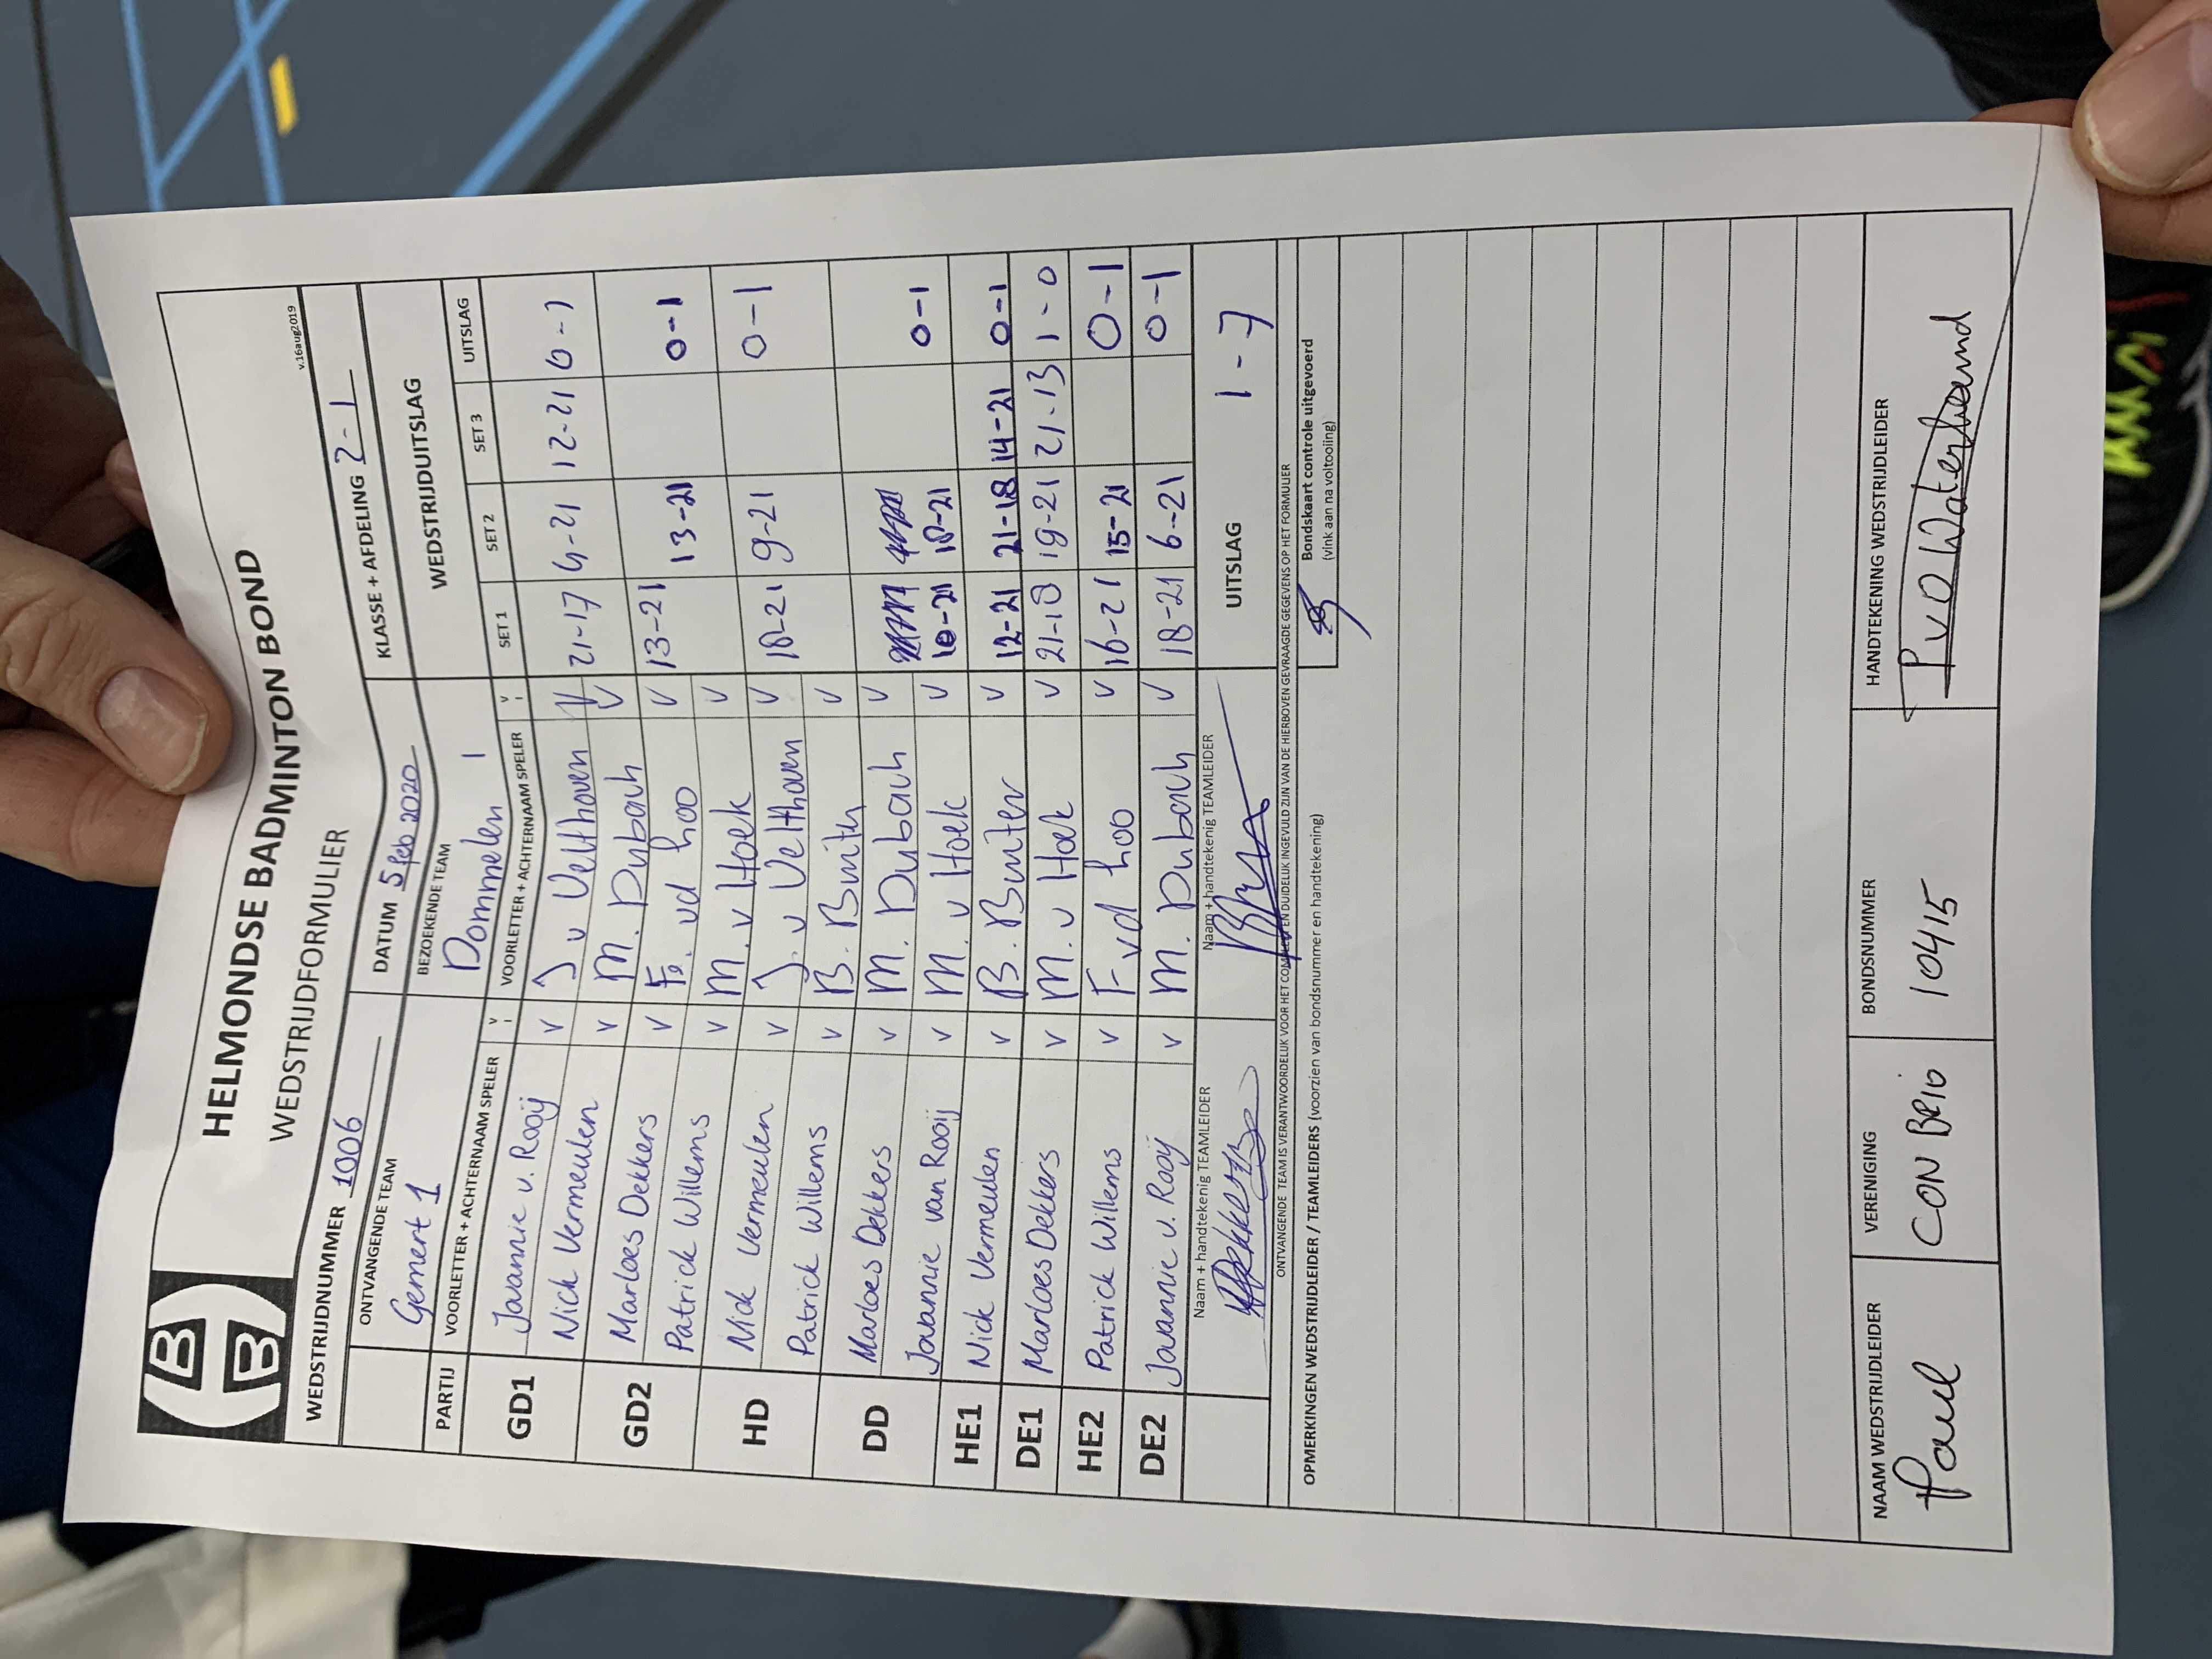 HELMONDSE BADMINTON BOND
WEDSTRIJDFORMULIER
v.16aug2019
WEDSTRIJDNUMMER 1006 DATUM 5 feb 2020 KLASSE + AFDELING 2-1
ONTVANGENDE TEAM BEZOEKENDE TEAM WEDSTRIJDUITSLAG
Gemert 1 Dommelen 1
PARTIJ VOORLETTER + ACHTERNAAM SPELER V VOORLETTER + ACHTERNAAM SPELER V SET 1 SET 2 SET 3 UITSLAG
GD1 Jovannie v. Rooij V J v Velthoven V 21-17 21 12-21 0-1
Nick Vermeulen V M. Dubach V
GD2 Marloes Dekkers V F. vd hoo V 13-21 13-21 0-1
Patrick Willems V M. v Hoek V
HD Nick Vermeulen V J. v Velthoven V 18-21 9-21 0-1
Patrick Willems V B. V
DD Marloes Dekkers V M. Dubach V
Jovannie van Rooij V M. v Hoek V 10-21 18-21 0-1
HE1 Nick Vermeulen V B. V 12-21 21-18 14-21 0-1
DE1 Marloes Dekkers V M. v Hoek V 21-18 19-21 21-13 1-0
HE2 Patrick Willems V F vd hoo V 16-21 15-21 0-1
DE2 Jovannie v. Rooij V M. Dubach V 18-21 6-21 0-1
Naam + handtekenig TEAMLEIDER Naam + handtekenig TEAMLEIDER UITSLAG 1-7
ONTVANGENDE TEAM IS VERANTWOORDELIJK VOOR HET EN DUIDELIJK INGEVULD ZIJN VAN DE HIERBOVEN GEVRAAGDE GEGEVENS OP HET FORMULIER
OPMERKINGEN WEDSTRIJDLEIDER / TEAMLEIDERS (voorzien van bondsnummer en handtekening)
Bondskaart controle uitgevoerd
(vink aan na voltooiing)
NAAM WEDSTRIJDLEIDER VERENIGING BONDSNUMMER HANDTEKENING WEDSTRIJDLEIDER
Paul CON BRIO 10415 P vd Waterbeemd